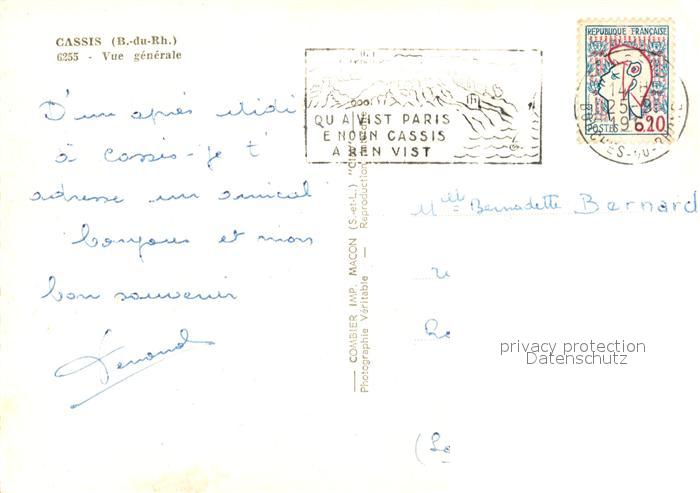 CASSIS (B.-du-Rh.)
6255 - Vue générale
D'un après midi
à Cassis - je t'
adresse un amical
bonjour et mon
bon souvenir
QU A VIST PARIS
E NOUN CASSIS
A REN VIST
REPUBLIQUE FRANÇAISE
POSTES 0,20
14 H
25 9
BOUCHES-DU-RHONE
COMBIER IMP. MACON (S.-et-L.)
Photographie Véritable — Reproduction
Melle Bernadette Bernard
privacy protection
Datenschutz